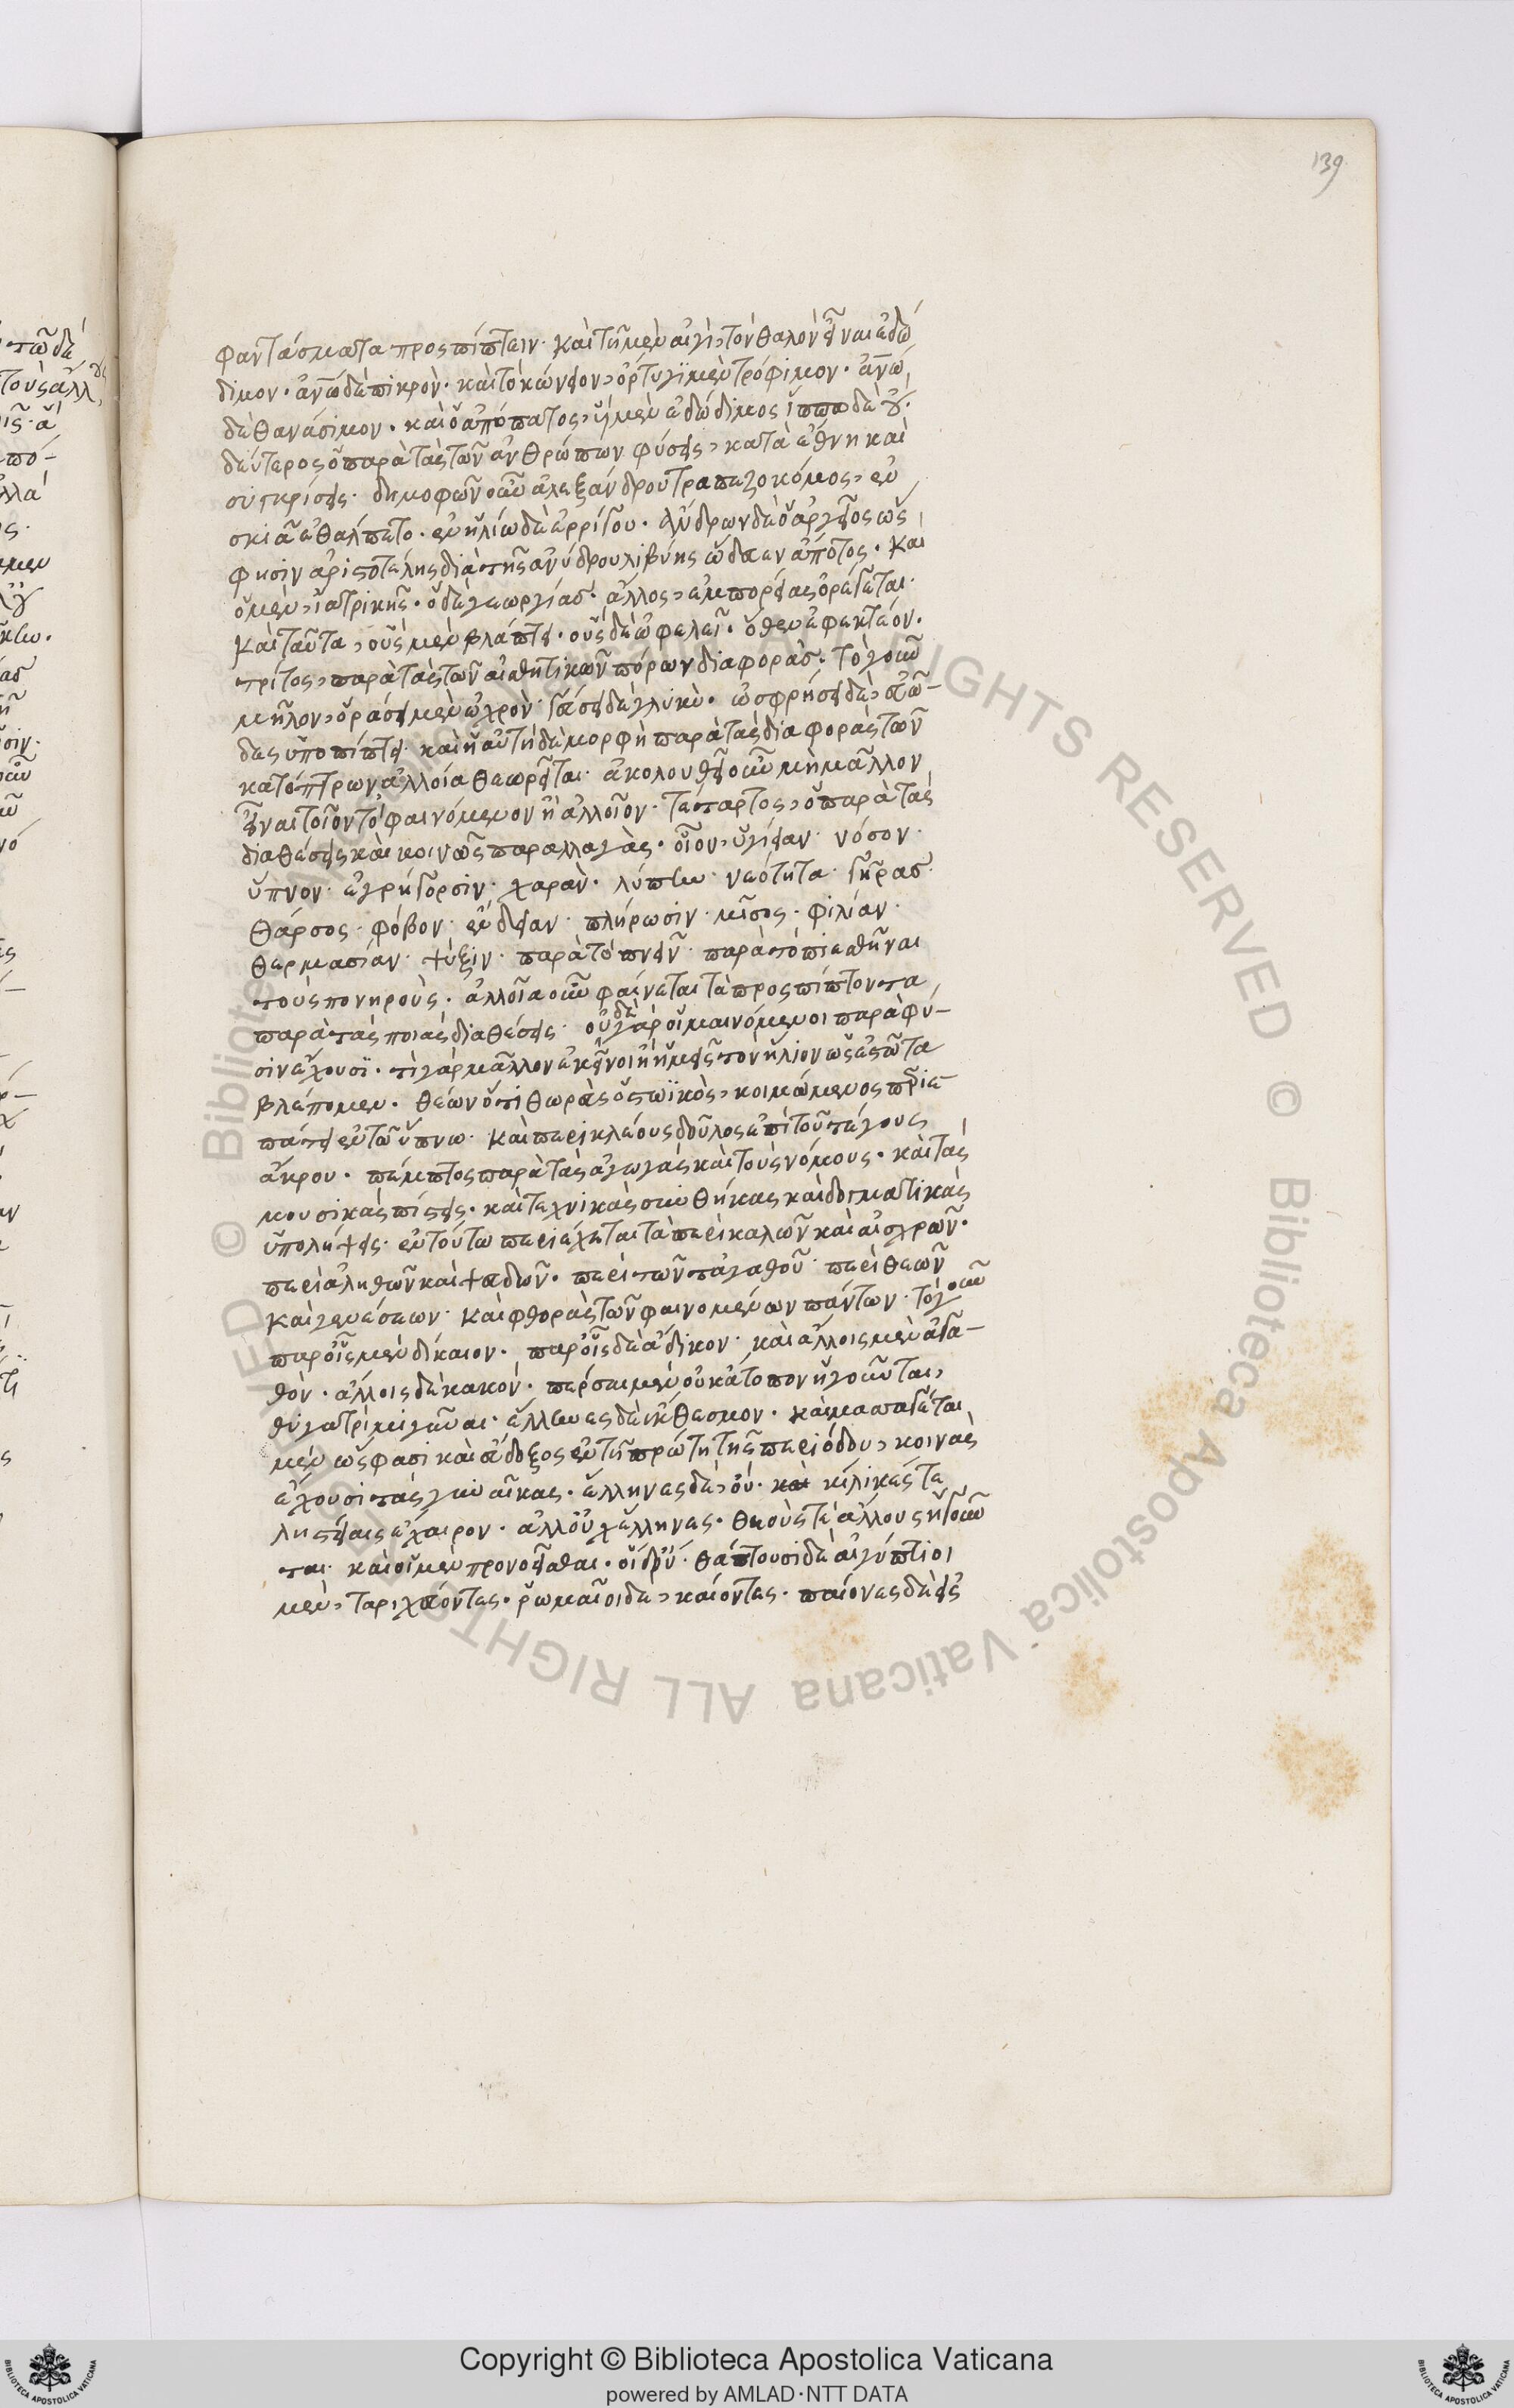 139
φαντάσματα προσπίπτειν· καὶ τῆ μὲν αἰγὶ, τὸν θαλὸν εἶναι ἐδώ
διμον· ἀν͞ω δὲ πικρὸν· καὶ τὸ κώνειον, ὄρτυγι μὲν τρόφιμον· ἀν͞ω
δὲ θανάσιμον· καὶ ὁ ἀπόπατος, ὑῒ μὲν ἐδώδιμος ἵππω δὲ οὔ·
δεύτερος ὁ παρὰ τὰς τῶν ἀνθρώπων φύσεις, κατὰ ἔθνη καὶ
συγκρίσεις· δημοφῶν οὖν ἀλεξάνδρου τραπεζοκόμος, ἐν
σκιᾶ ἐθάλπετο· ἐν ἡλίω δὲ ἐρρίγου· ἄνδρων δὲ ὁ ἀργεῖος ὥς
φησιν ἀριστοτέλης διὰ τῆς ἀνύδρου λιβύης ὥδευεν ἄποτος· και
ὁ μὲν, ἰατρικῆς· ὁ δὲ γεωργίας· ἄλλος, ἐμπορείας ὀρέγεται·
καὶ ταῦτα, οὓς μὲν βλάπτει· οὓς δὲ ὠφελεῖ· ὅθεν ἐφεκτέον·
τρίτος, παρὰ τὰς τῶν αἰσθητικῶν πόρων διαφορὰς· τὸ γοῦν
μῆλον, ὁράσει μὲν ὠχρὸν· γεύσει δὲ γλυκὺ· ὀσφρήσει δὲ, εὐῶ-
δες ὑποπίπτει· καὶ ἡ αὐτὴ δὲ μορφὴ παρὰ τὰς διαφορὰς τῶν
κατόπτρων ἀλλοία θεωρεῖται· ἀκολουθεῖ οὖν μὴ μᾶλλον
εἶναι τοῖον τὸ φαινόμενον ἢ ἀλλοῖον· τέταρτος, ὁ παρὰ τὰς
διαθέσεις καὶ κοινῶς παραλλαγὰς· οἷον, ὑγίειαν· νόσον·
ὕπνον· ἐγρήγορσιν· χαρὰν· λύπην· νεότητα· γῆρας·
θάρσος· φόβον· ἔνδειαν· πλήρωσιν· μῖσος· φιλίαν·
θερμασίαν· ψύξιν· παρὰ τὸ πνεῖν· παρὰ τὸ πιεσθῆναι
τοὺς πονηροὺς· ἀλλοῖα οὖν φαίνεται τὰ προσπίπτοντα
παρὰ τὰς ποιὰς διαθέσεις· οὐδὲ γὰρ οἱ μαινόμενοι παρὰ φύ-
σιν ἔχουσι· τί γὰρ μᾶλλον ἐκεῖνοι ἢ ἡμεῖς τὸν ἥλιον ὡς ἑστῶτα
βλέπομεν· θέων ὁ τιθωρὰς ὁ στωϊκὸς, κοιμώμενος περιε
πάτει ἐν τῶ ὕπνω· καὶ περικλέους δοῦλος ἐπὶ τοῦ τέγους
ἄκρου· πέμπτος παρὰ τὰς ἀγωγὰς καὶ τοὺς νόμους· καὶ τὰς
μουσικὰς πίστεις· καὶ τεχνικὰς συνθήκας καὶ δογματικὰς
ὑπολήψεις· ἐν τούτω περιέχεται τὰ περὶ καλῶν καὶ αἰσχρῶν·
περὶ ἀληθῶν καὶ ψευδῶν· περὶ τῶν τἀγαθοῦ· περὶ θεῶν
καὶ γενέσεων· καὶ φθορᾶς τῶν φαινομένων πάντων· τὸ γοῦν
παρ οἷς μὲν δίκαιον· παρ οἷς δὲ ἄδικον· καὶ ἄλλοις μὲν ἀγα-
θὸν· ἄλλοις δὲ κακὸν· πέρσαι μὲν οὐκ ἄτοπον ἡγοῦνται,
θυγατρὶ μίγνυσθαι· ἕλληνες δὲ ἔκθεσμον· καὶ μασσαγέται
μὲν ὥς φασι καὶ εὔδοξος ἐν τῆ πρώτη τῆς περιόδου, κοινὰς
ἔχουσι τὰς γυναῖκας· ἕλληνες δὲ, οὔ· κίλικές τε
ληστείαις ἔχαιρον· ἀλλ οὐχ ἕλληνες· θεούς τε ἄλλους ἡγοῦν
ται· καὶ οἱ μὲν προνοεῖσθαι· οἱ δ οὔ· θάπτουσι δὲ αἰγύπτιοι
μὲν, ταριχεύοντες· ῥωμαῖοι δὲ, καίοντες· παίονες δὲ εἰς